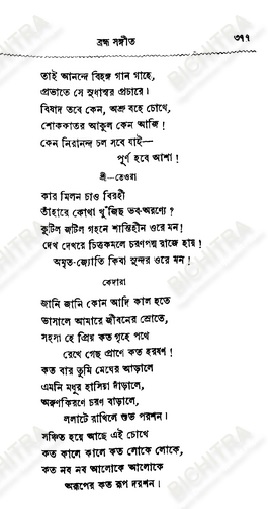 ব্রহ্ম সঙ্গীত ৩৭৭
তাই আনন্দে বিহঙ্গ গান গাহে,
প্রভাতে সে সুধাস্বর প্রচারে।
বিষাদ তবে কেন, অশ্রু বহে চোখে,
শোককাতর আকুল কেন আজি!
কেন নিরানন্দ চল সবে যাই—
পূর্ণ হবে আশা!
শ্রী—তেওরা
কার মিলন চাও বিরহী
তাঁহারে কোথা খুঁজিছ ভব-অরণ্যে?
কুটিল জটিল গহনে শান্তিহীন ওরে মন!
দেখ দেখরে চিত্তকমলে চরণপদ্ম রাজে হায়!
অমৃত-জ্যোতি কিবা সুন্দর ওরে মন!
কেদারা
জানি জানি কোন আদি কাল হতে
ভাসালে আমারে জীবনের স্রোতে,
সহসা হে প্রিয় কত গৃহে পথে
রেখে গেছ প্রাণে কত হরষণ!
কত বার তুমি মেঘের আড়ালে
এমনি মধুর হাসিয়া দাঁড়ালে,
অরুণকিরণে চরণ বাড়ালে,
ললাটে রাখিলে শুভ পরশন।
সঞ্চিত হয়ে আছে এই চোখে
কত কালে কালে কত লোকে লোকে,
কত নব নব আলোকে আলোকে
অরূপের কত রূপ দরশন।
BICHITRA